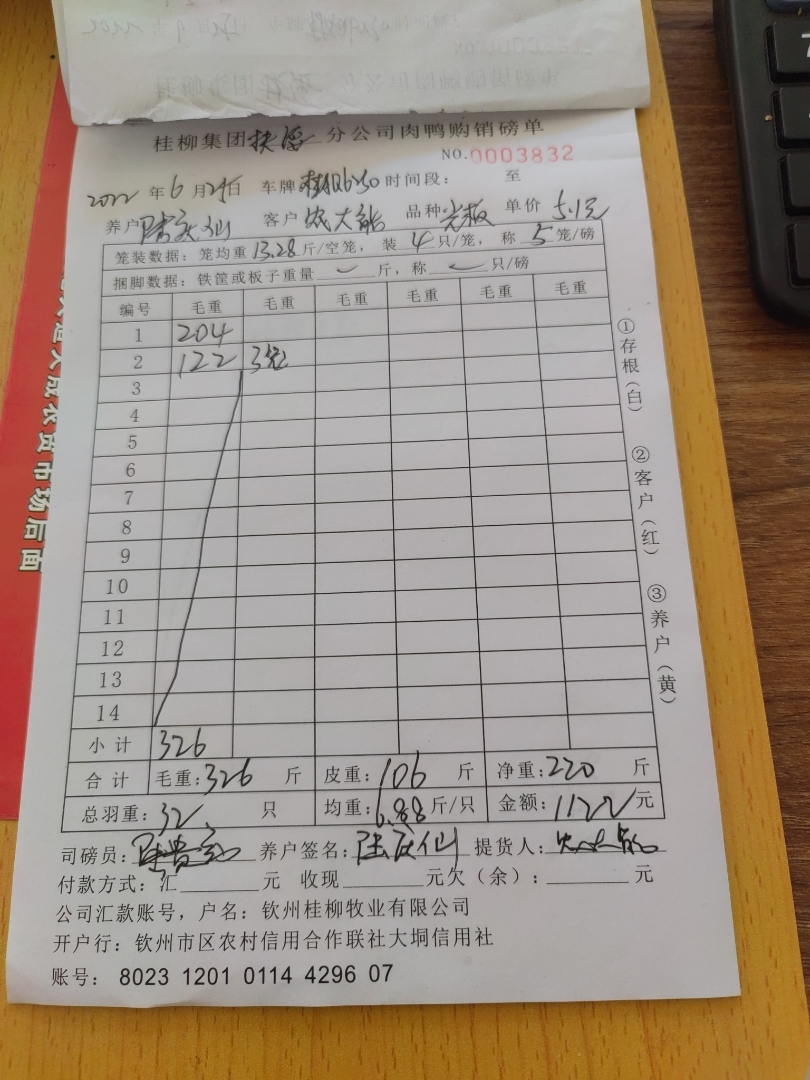 桂柳集团扶 分公司肉鸭购销磅单
NO.0003832
2022年6月25日 车牌 时间段: 至
养户陆庆仙 客户农大能 品种光板 单价5.1元
笼装数据: 笼均重13.28斤/空笼, 装4只/笼, 称5笼/磅
捆脚数据: 铁筐或板子重量 斤, 称 只/磅
编号 毛重 毛重 毛重 毛重 毛重 毛重
1 204
2 122 3笼
3
4
5
6
7
8
9
10
11
12
13
14
小计 326
合计 毛重:326斤 皮重:106斤 净重:220斤
总羽重:32只 均重:6.88斤/只 金额:1122元
司磅员: 养户签名:陆庆仙 提货人:农大能
付款方式: 汇 元 收现 元欠(余): 元
公司汇款账号, 户名: 钦州桂柳牧业有限公司
开户行: 钦州市区农村信用合作联社大垌信用社
账号: 8023 1201 0114 4296 07
①存根(白)
②客户(红)
③养户(黄)
大成农贸市场后面